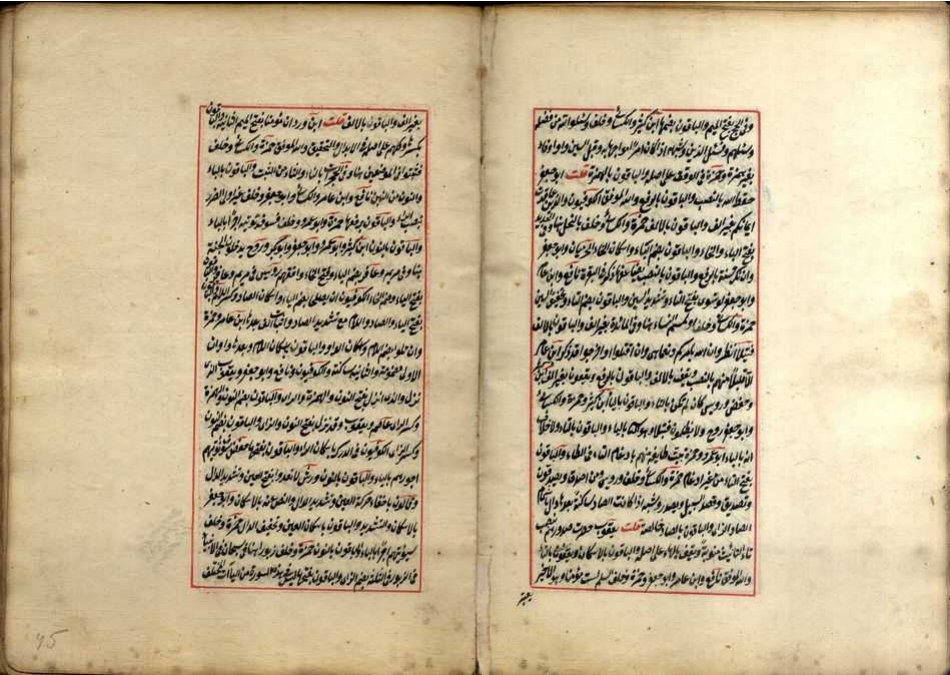 وفي الحج بفتح الميم والباقون بضمها ابن كثير والكسائي وخلف وسلوا الله من فضله
وسلهم وفسئل الذين وشبهه اذا كان امر المواجه به وقبل السين واو او فاء
بغير همزة وحمزة في الوقف على اصله والباقون بالهمزة قلت ابو جعفر
حفظ الله بالنصب والباقون بالرفع والله الموفق الكوفيون والذين عقدت
ايمانكم بغير الف والباقون بالالف حمزة والكسائي وخلف بالبخل هنا وفي الحديد
بفتح الباء والخاء والباقون بضم الباء واسكان الخاء الحرميان وابو جعفر
وان تك حسنة بالرفع والباقون بالنصب يضاعفها ذكر في البقرة نافع وابن عامر
وابو جعفر لو تسوى بفتح التاء وتشديد السين والباقون بضم التاء وتخفيف السين
حمزة والكسائي وخلف او لمستم النساء هنا وفي المائدة بغير الف والباقون بالالف
فتيلا انظر وان الله يامركم ونعما هي وان اقتلوا او اخرجوا قد ذكر ابن عامر
الا قليلا منهم بالنصب ويقف بالالف والباقون بالرفع ويقفون بغير الف ابن كثير
وحفص ورويس كان لم تكن بالتاء والباقون بالياء ابن كثير وحمزة والكسائي
وابو جعفر وروح ولا تظلمون فتيلا هو الثاني بالياء والباقون بالتاء ولا خلاف
انه بالياء ابو عمرو وحمزة بيت طايفة منهم بادغام التاء في الطاء والباقون
بفتح التاء من غير ادغام حمزة والكسائي وخلف ورويس ومن اصدق ويصدفون
وتصدية وقصد السبيل ويصدر وشبهه اذا كانت الصاد ساكنة بعدها دال باشمام
الصاد الزاي والباقون بالصاد خالصة قلت يعقوب حصرت صدورهم بنصب
تاء التانيث منونة ويقف بالهاء على اصله والباقون بالاسكان ويقفون بالتاء
والله الموفق نافع وابن عامر وابو جعفر وحمزة وخلف السلم لست مؤمنا وهو الاخير
بغير
بغير الف والباقون بالالف قلت ابن وردان مؤمنا بفتح الميم الثانية والباقون
بكسرها وكلهم على اصله في الابدال والتحقيق والله الموفق حمزة والكسائي وخلف
فتثبتوا في الموضعين هنا وفي الحجرات بالتاء والثاء من التثبت والباقون بالياء
والنون من التبين نافع وابن عامر والكسائي وابو جعفر وخلف غير اولى الضرر
بنصب الراء والباقون برفعها حمزة وابو عمرو وخلف فسوف يوتيه اجرا بالياء
والباقون بالنون ابن كثير وابو عمرو وابو جعفر وابو بكر وروح يدخلون الجنة
هنا وفي مريم وغافر بضم الياء وفتح الخاء وافقهم رويس في مريم وغافر والباقون
بفتح الياء وضم الخاء الكوفيون ان يصلحا بضم الياء واسكان الصاد وكسر اللام والباقون
بفتح الياء والصاد واللام مع تشديد الصاد واثبات الف بعدها ابن عامر وحمزة
وان تلوا بضم اللام والباقون باسكان اللام وبعدها واوان
الاولى مضمومة والثانية ساكنة والكوفيون ونافع وابو جعفر ويعقوب الذي
نزل والذي انزل بفتح النون والهمزة والزاي والباقون بضم النون والهمزة
وكسر الزاي عاصم ويعقوب وقد نزل بفتح النون والزاي والباقون بضم النون
وكسر الزاي الكوفيون في الدرك باسكان الراء والباقون بفتحها حفص سوف يؤتيهم
اجورهم بالياء والباقون بالنون ورش لا تعدوا بفتح العين وتشديد الدال
وقالون باخفاء حركة العين وتشديد الدال والنص عنه بالاسكان وابو جعفر
بالاسكان والتشديد والباقون باسكان العين وتخفيف الدال حمزة وخلف
سيؤتيهم اجرا بالياء والباقون بالنون حمزة وخلف زبورا هنا وفي سبحان والانبياء
في الزبور في الثلثة بضم الزاي والباقون بفتحها ليس في هذه السورة من الياآت المختلف
45